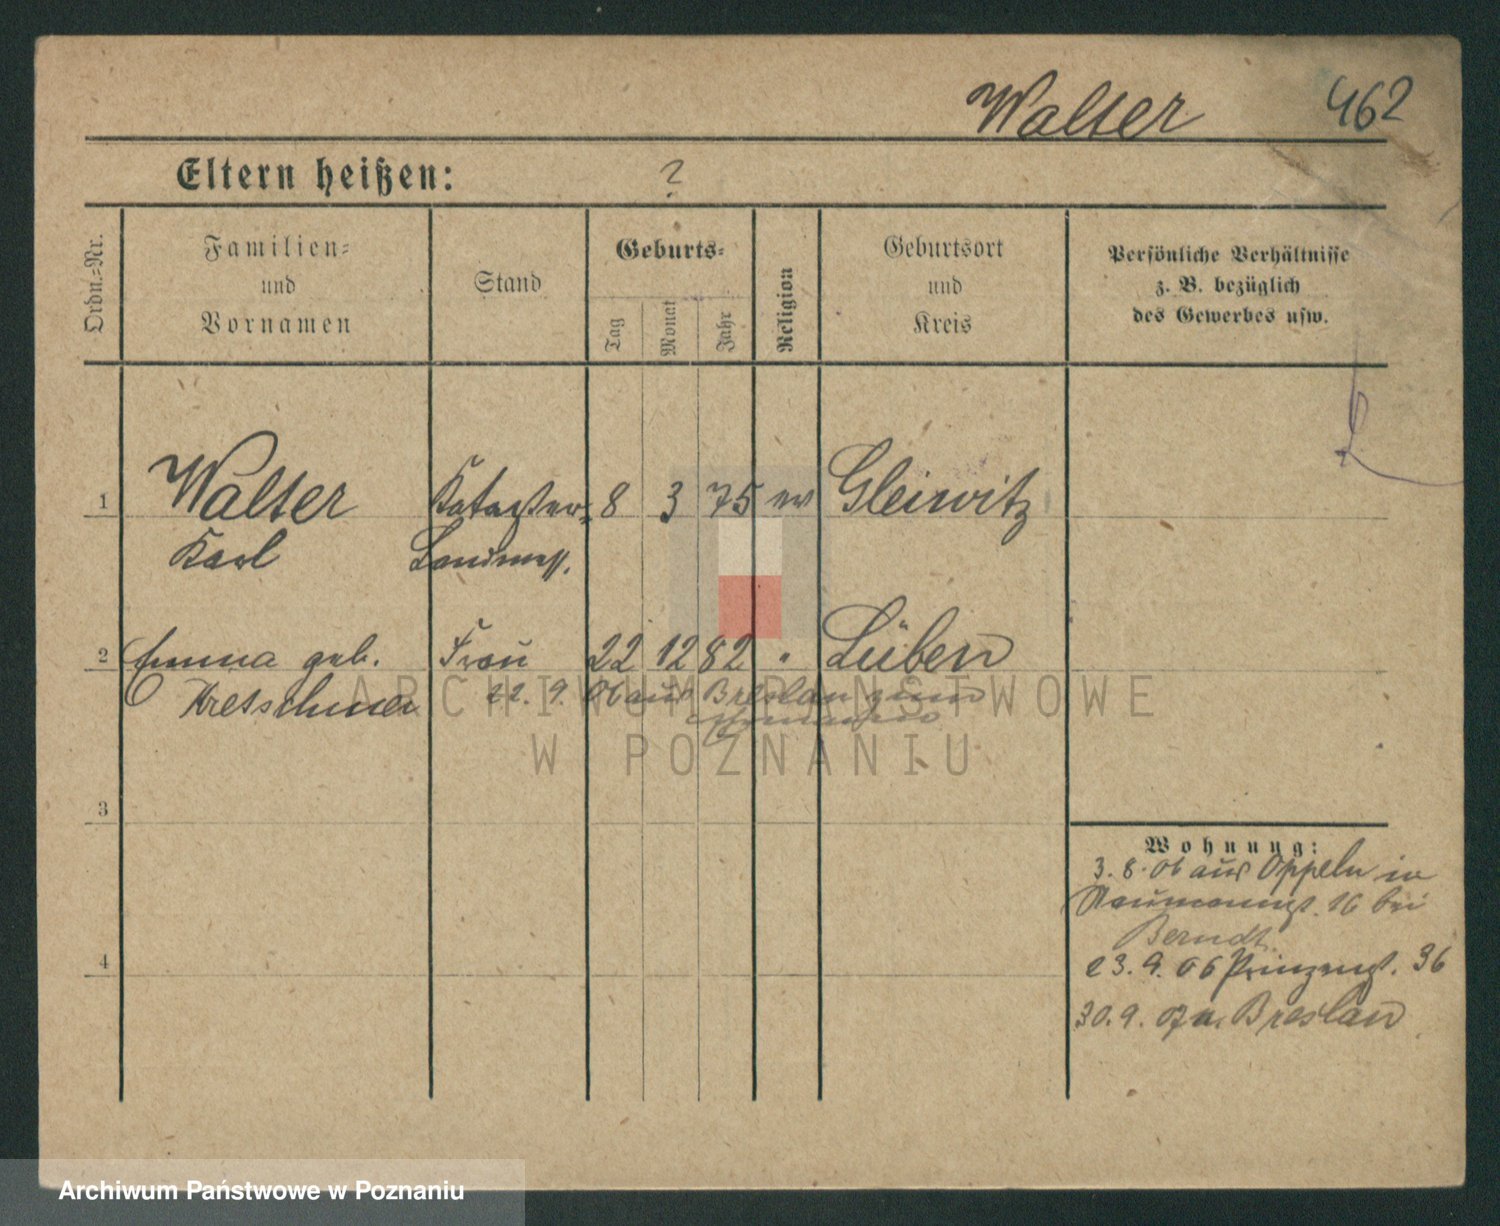 Walter 462
Eltern heißen: ?
Ordn.=Nr.
Familien=
und
Vornamen
Stand
Geburts=
Tag
Monat
Jahr
Religion
Geburtsort
und
Kreis
Persönliche Verhältnisse
z. B. bezüglich
des Gewerbes usw.
1 Walter Kataster= 8 3 75 ev Gleiwitz
Karl Landmess.
2 Emma geb. Frau 22 12 82 " Lüben
Kretschmer 22. 9. 06 aus Breslau zum
Ehemann
3
4
Wohnung:
3. 8. 06 aus Oppeln in
Naumannst. 16 bei
Berndt
23. 9. 06 Prinzenst. 36
30. 9. 07 n. Breslau
ARCHIWUM PAŃSTWOWE
W POZNANIU
Archiwum Państwowe w Poznaniu